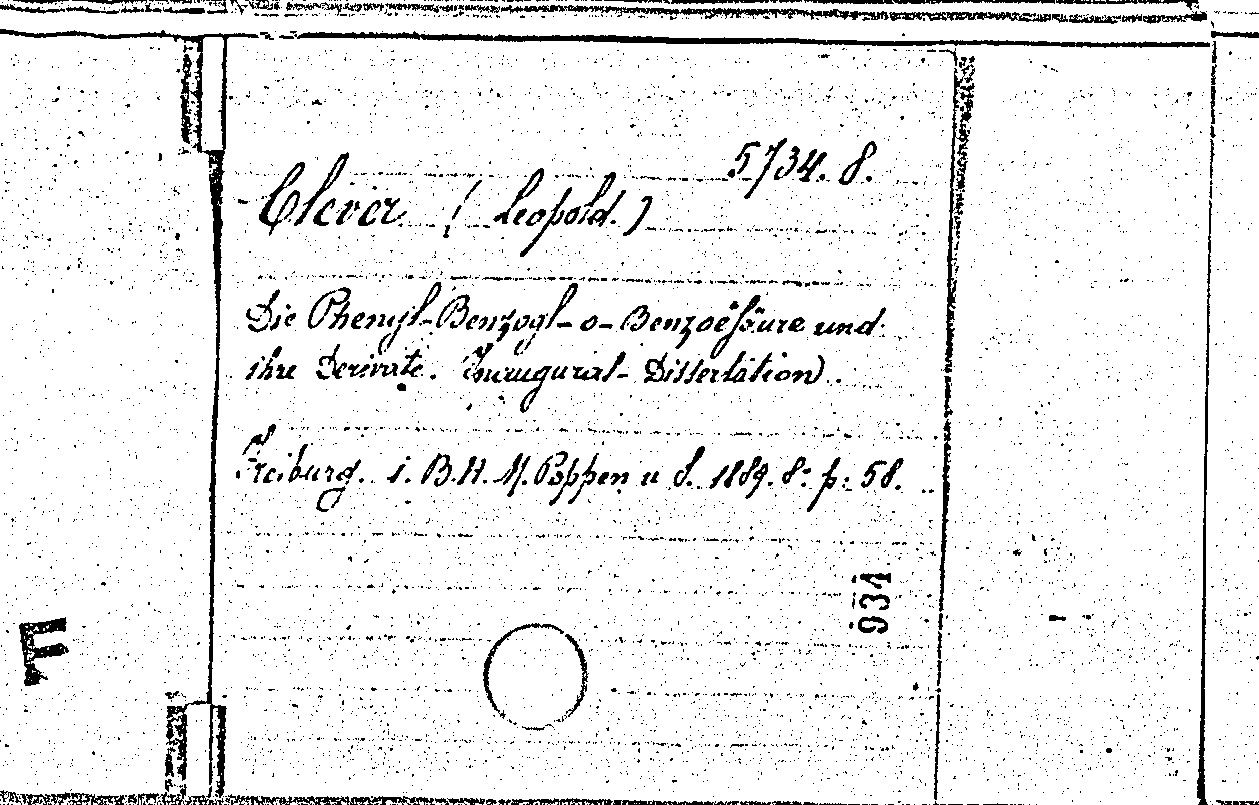 5734. 8.
Clever (Leopold.)
Die Phenyl-Benzoyl-o-Benzoësäure und
ihre Derivate. Inaugural-Dissertation.
Freiburg. i. B. H. M. Poppen u S. 1889. 8° p: 58.
934
F